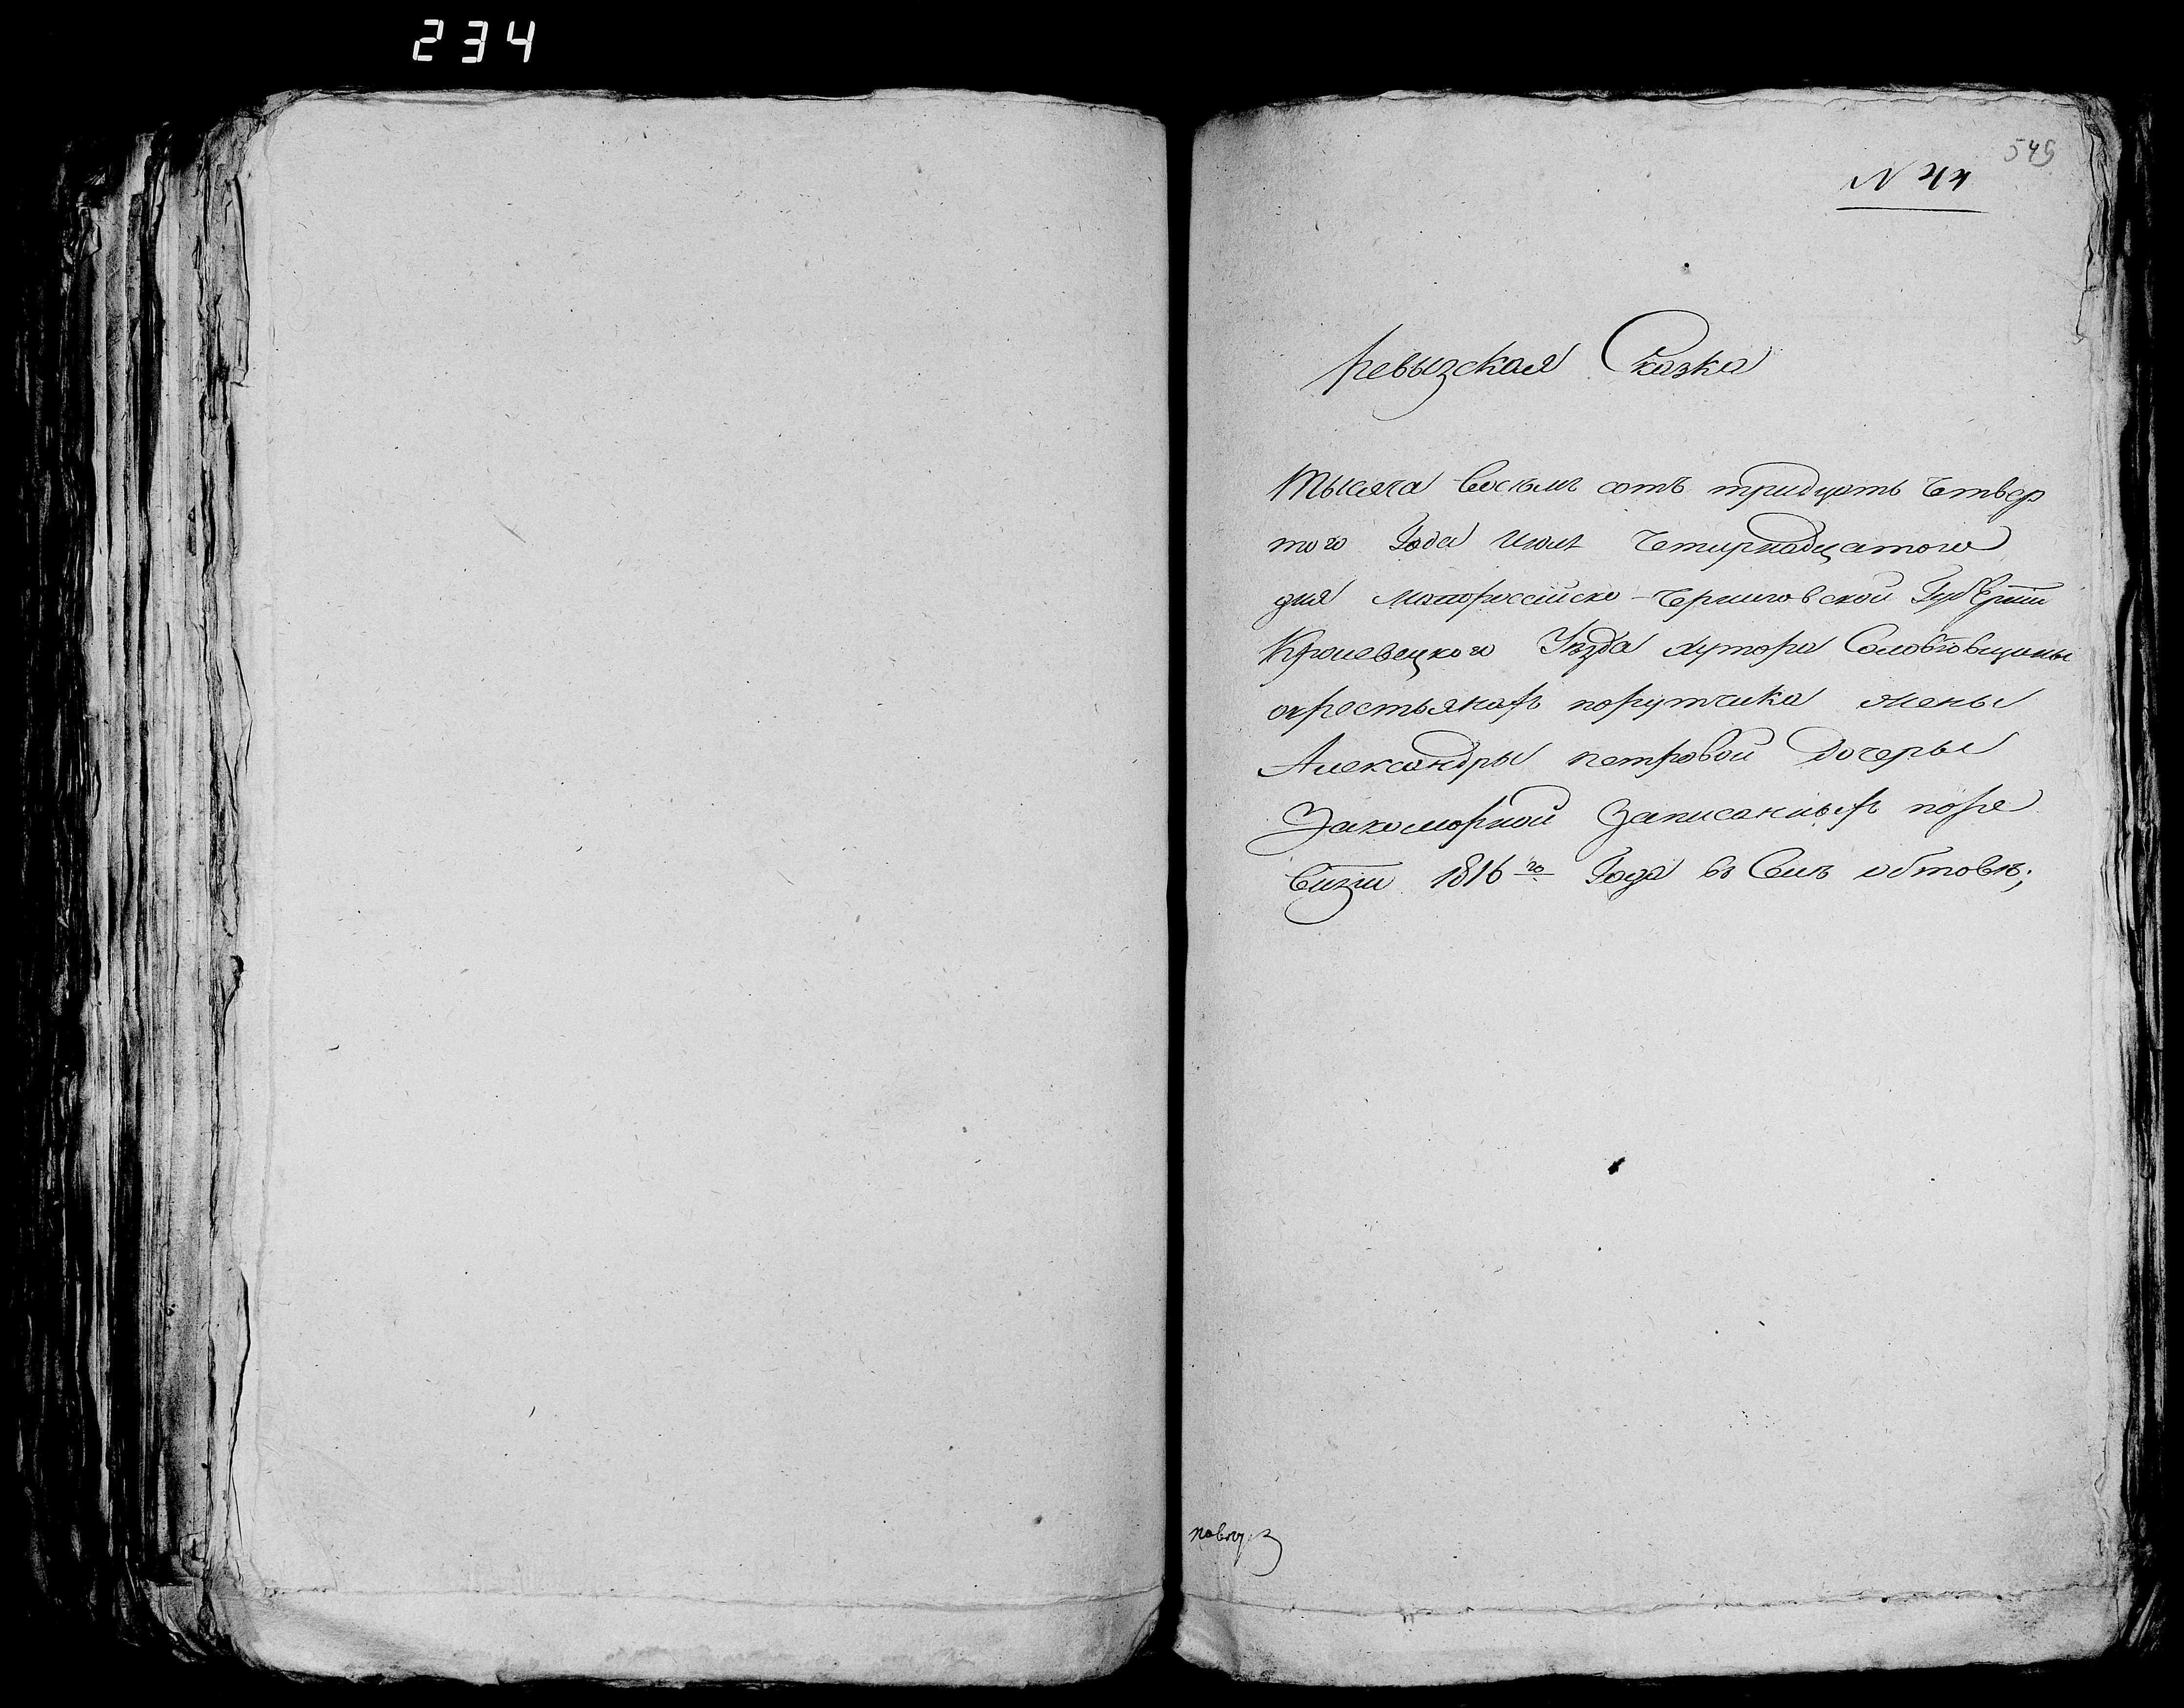 234
549
N 44
Ревызская Сказка
Тысяча восемъ сотъ тридцать четвер
того Года Июля Четирнадцатого
дня малороссійско-черниговской Губерніи
Кролевецкого Уезда хутора
окрестьянахъ порутчика жены
Александры петровой дочеры
Закоморной Записаныхъ поре
визіи 1816го Года въ Селѣ обтовѣ;